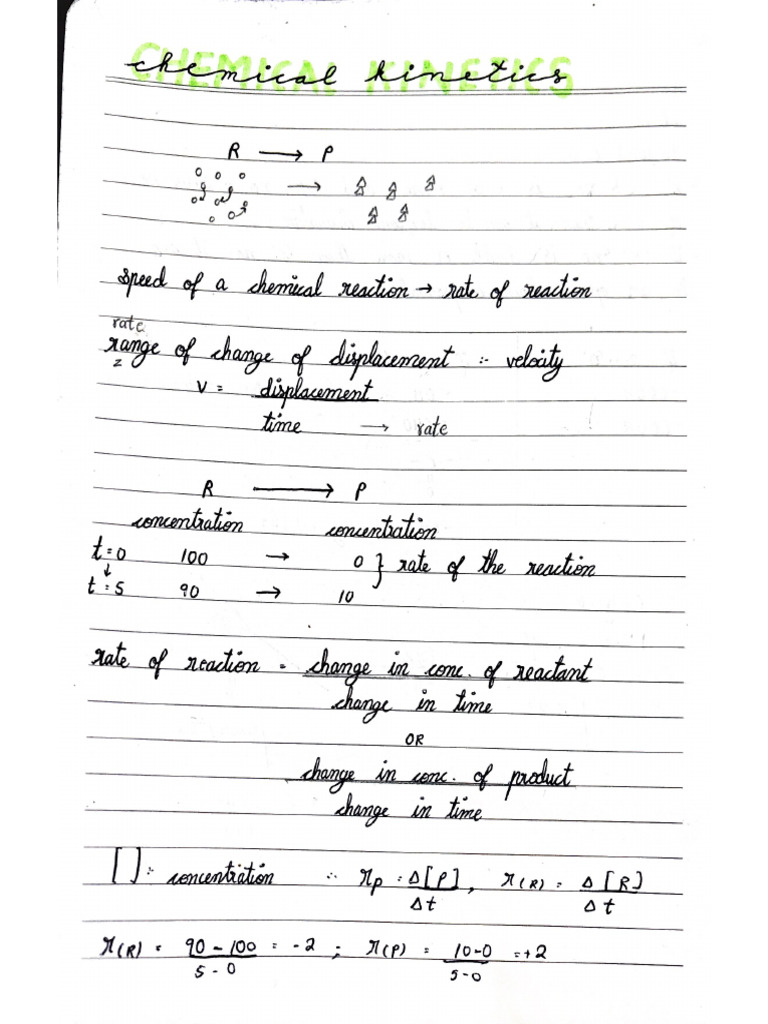 chemical kinetics
R → P
→
speed of a chemical reaction → rate of reaction
rate
range of change of displacement :- velocity
V = displacement
time → rate
R → P
concentration concentration
t=0 100 → 0 } rate of the reaction
↓
t=5 90 → 10
rate of reaction = change in conc. of reactant
change in time
OR
change in conc. of product
change in time
[ ] :- concentration ∴ rp = Δ[P], r(R) = Δ[R]
Δt Δt
r(R) = 90 - 100 = -2 ; r(P) = 10-0 = +2
5 - 0 5-0